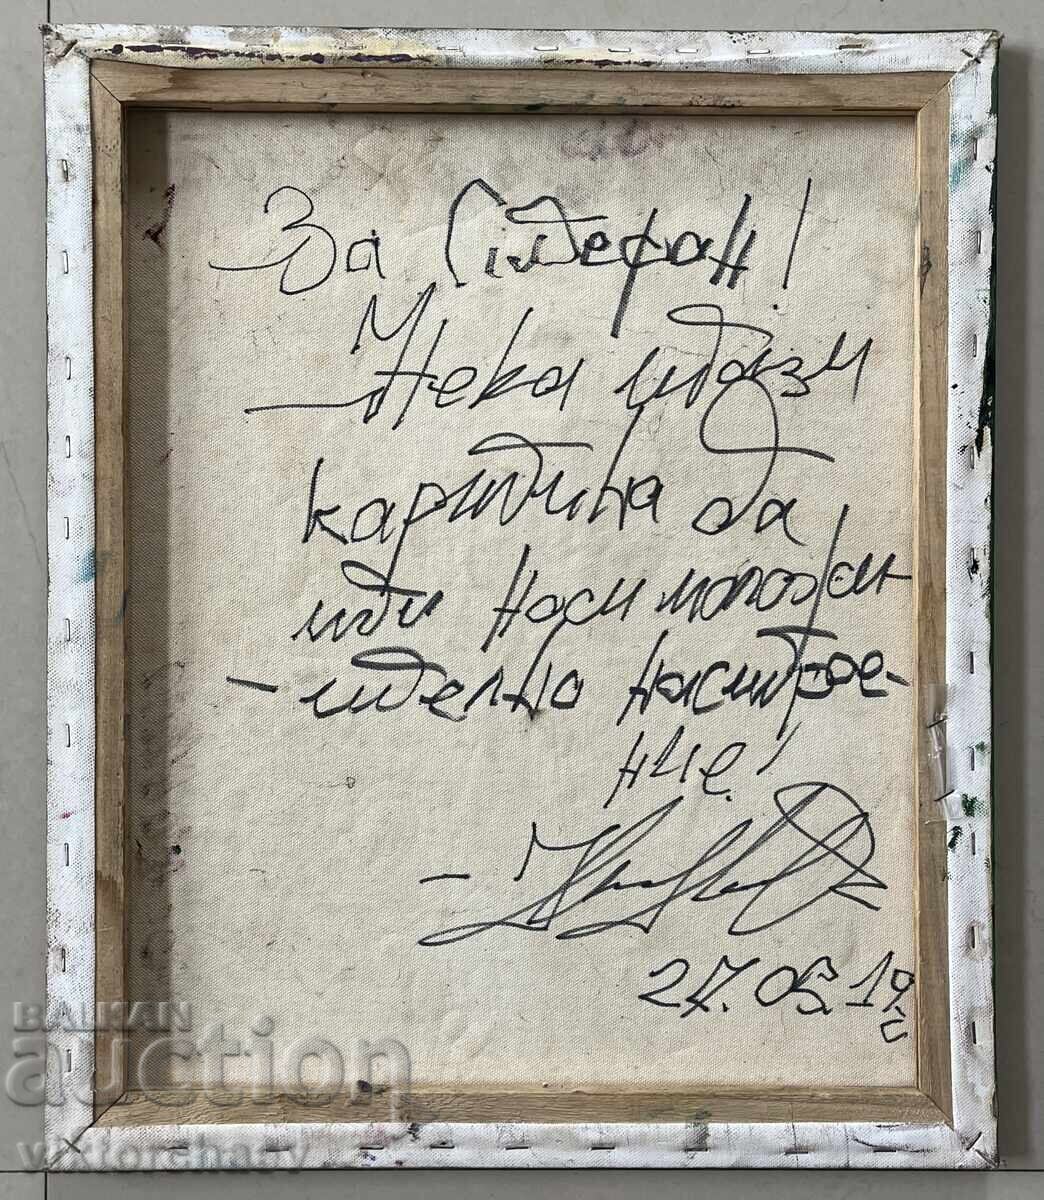 За Стефан!
Нека тази
картина да
ти носи положи-
-телно настрое-
ние!
27.05.19г.
BALKAN
auction
viktorchaev